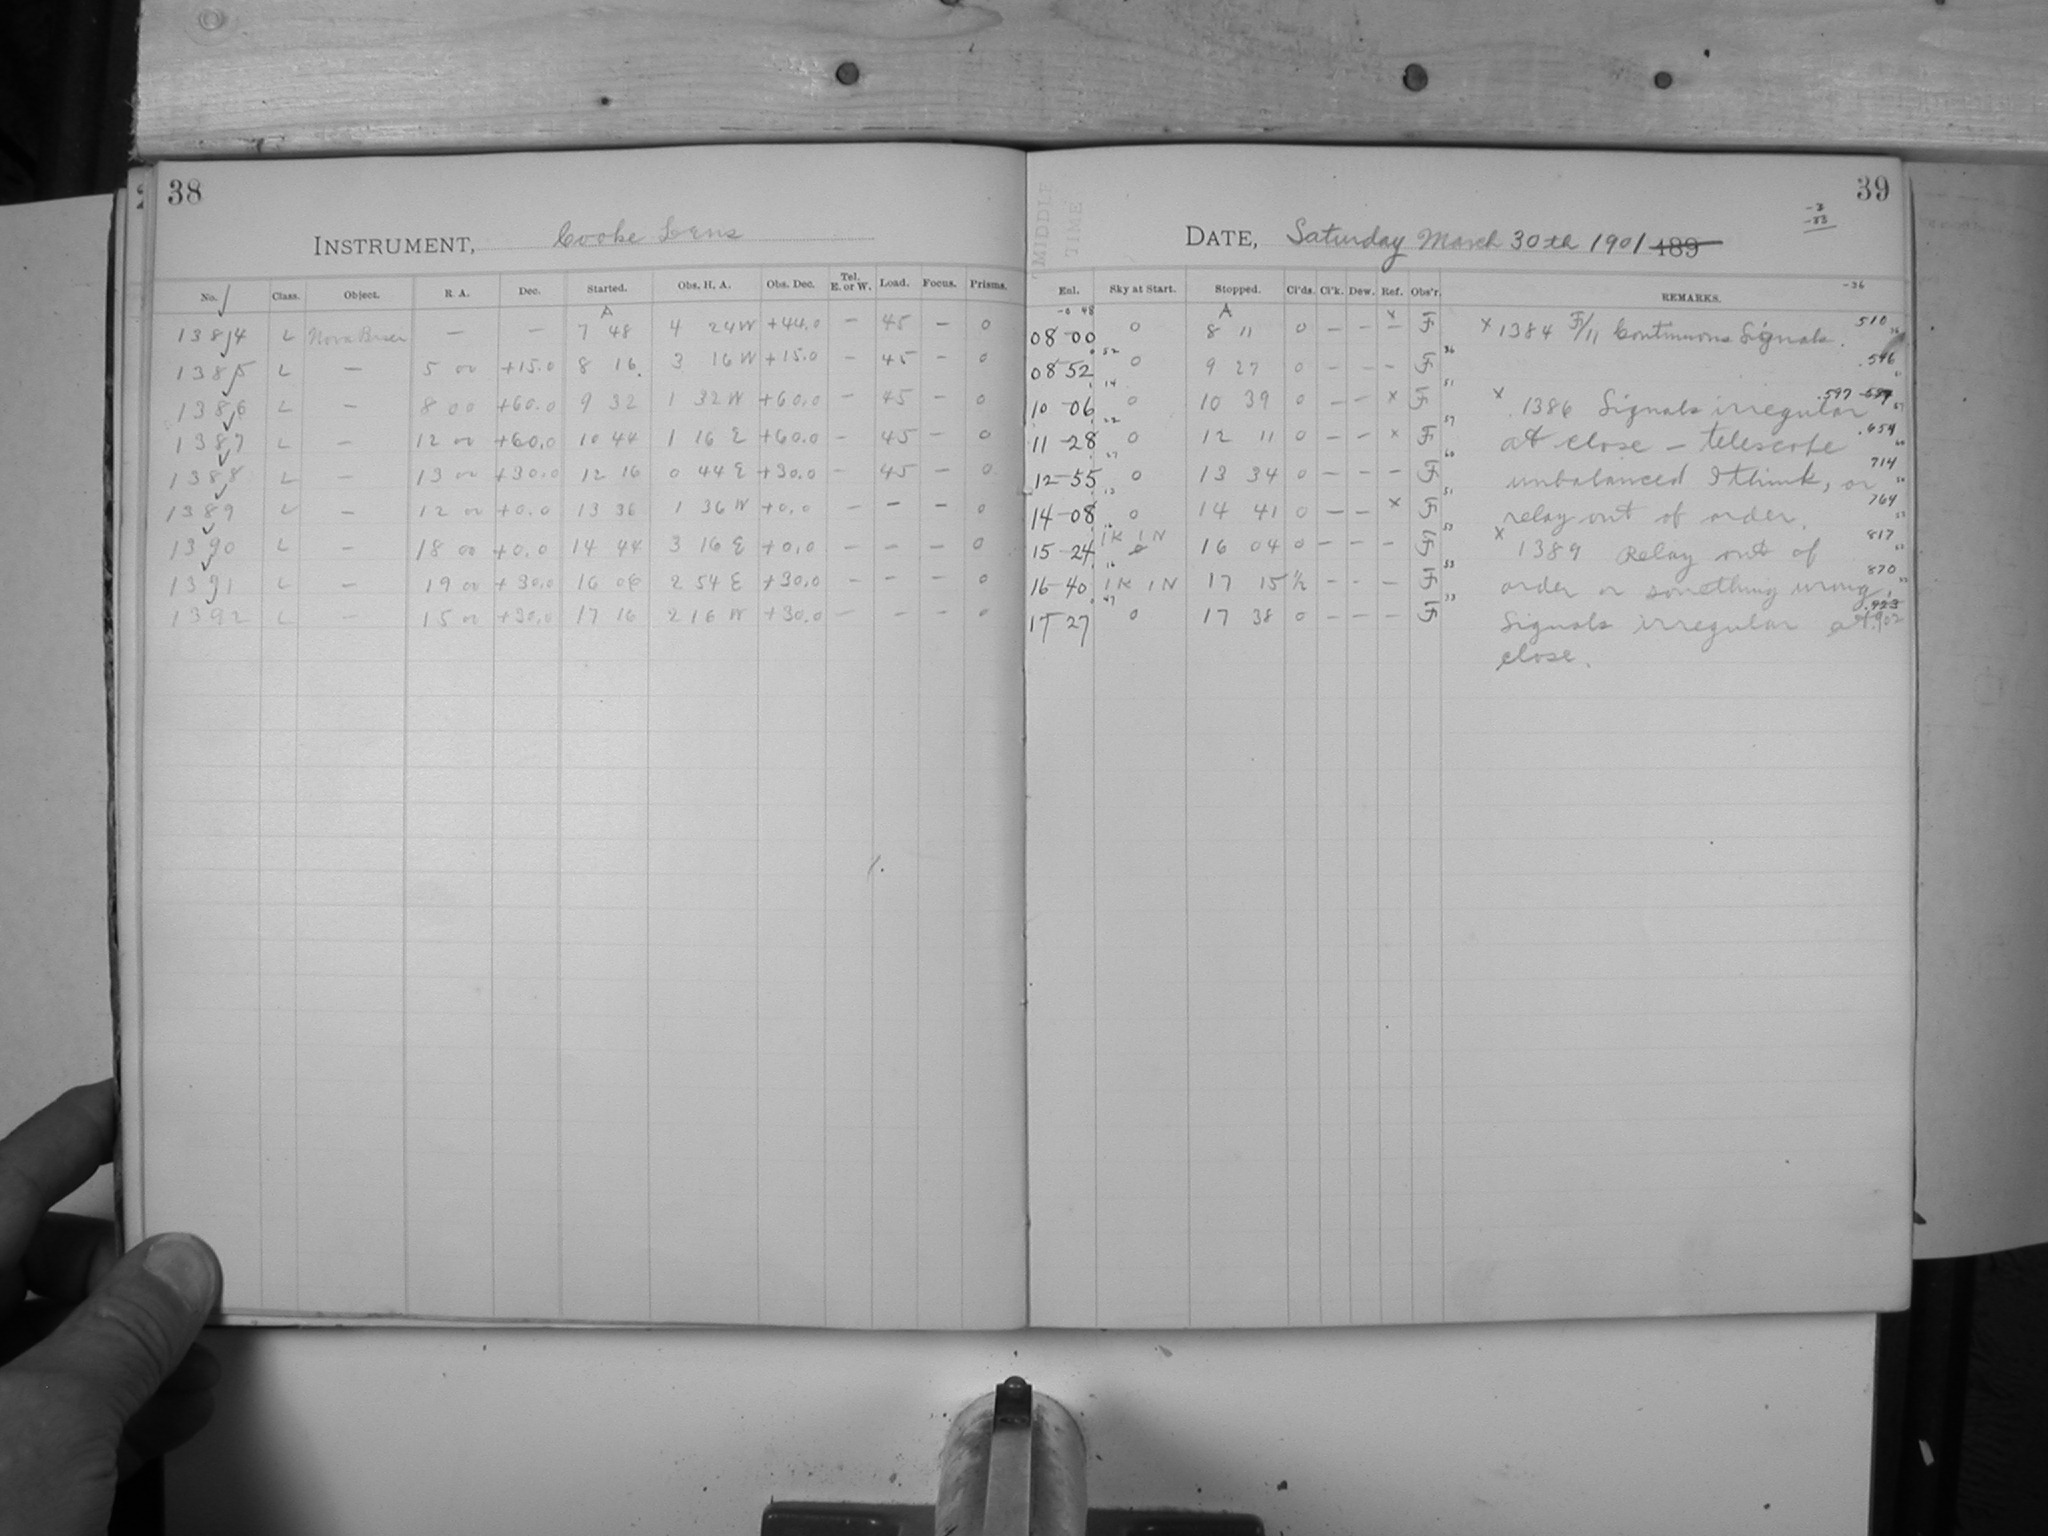 38
INSTRUMENT, Cooke Lens
No. Class. Object. R. A. Dec. Started. Obs. H. A. Obs. Dec. Tel. E. or W. Load. Focus. Prisms.
A
1384 L Nova — — 7 48 4 24 W +44.0 — 45 — 0
1385 L — 5 00 +15.0 8 16 3 16 W +15.0 — 45 — 0
1386 L — 8 00 +60.0 9 32 1 32 W +60.0 — 45 — 0
1387 L — 12 00 +60.0 10 44 1 16 E +60.0 — 45 — 0
1388 L — 13 00 +30.0 12 16 0 44 E +30.0 — 45 — 0
1389 L — 12 00 +0.0 13 36 1 36 W +0.0 — — — 0
1390 L — 18 00 +0.0 14 44 3 16 E +0.0 — — — 0
1391 L — 19 00 +30.0 16 08 2 54 E +30.0 — — — 0
1392 L — 15 00 +30.0 17 16 2 16 W +30.0 — — — 0
39
-3
-33
MIDDLE
TIME
DATE, Saturday March 30th 1901 189
Enl. Sky at Start. Stopped. Cl'ds. Cl'k. Dew. Ref. Obs'r. REMARKS. -36
-0 48 A x
08-00 0 8 11 0 — — — F x 1384 F/11 Continuous Signals. 510
52 36
08 52 0 9 27 0 — — — F .546
14 51
10-06 0 10 39 0 — — x F x 1386 Signals irregular .597
22 57
11-28 0 12 11 0 — — x F at close — telescope .654
60
12-55 0 13 34 0 — — — F unbalanced I think, or 714
13 51
14-08 0 14 41 0 — — x F relay out of order. 764
16 1K 1N 53
15-24 0 16 04 0 — — — F x 1389 Relay out of 817
16 53
16-40 1K 1N 17 15 ½ — — — F order or something wrong, 870
47 33
17 27 0 17 38 0 — — — F Signals irregular at .923 .902
close.